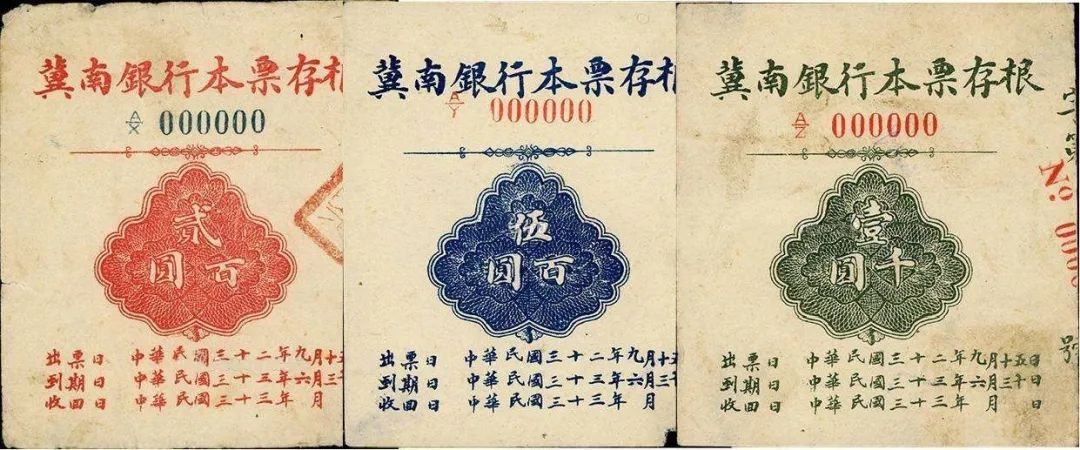 冀南銀行本票存
A/X 000000
貳
百圓
出票日 中華民國三十二年九月十五
到期日 中華民國三十三年六月三十
收回日 中華民國三十三年 月
冀南銀行本票存
A/Y 000000
伍
百圓
出票日 中華民國三十二年九月十五
到期日 中華民國三十三年六月三十
收回日 中華民國三十三年 月
冀南銀行本票存根
A/Z 000000
壹
千圓
出票日 中華民國三十二年九月十五日
到期日 中華民國三十三年六月三十日
收回日 中華民國三十三年 月 日
字第
No. 000
號